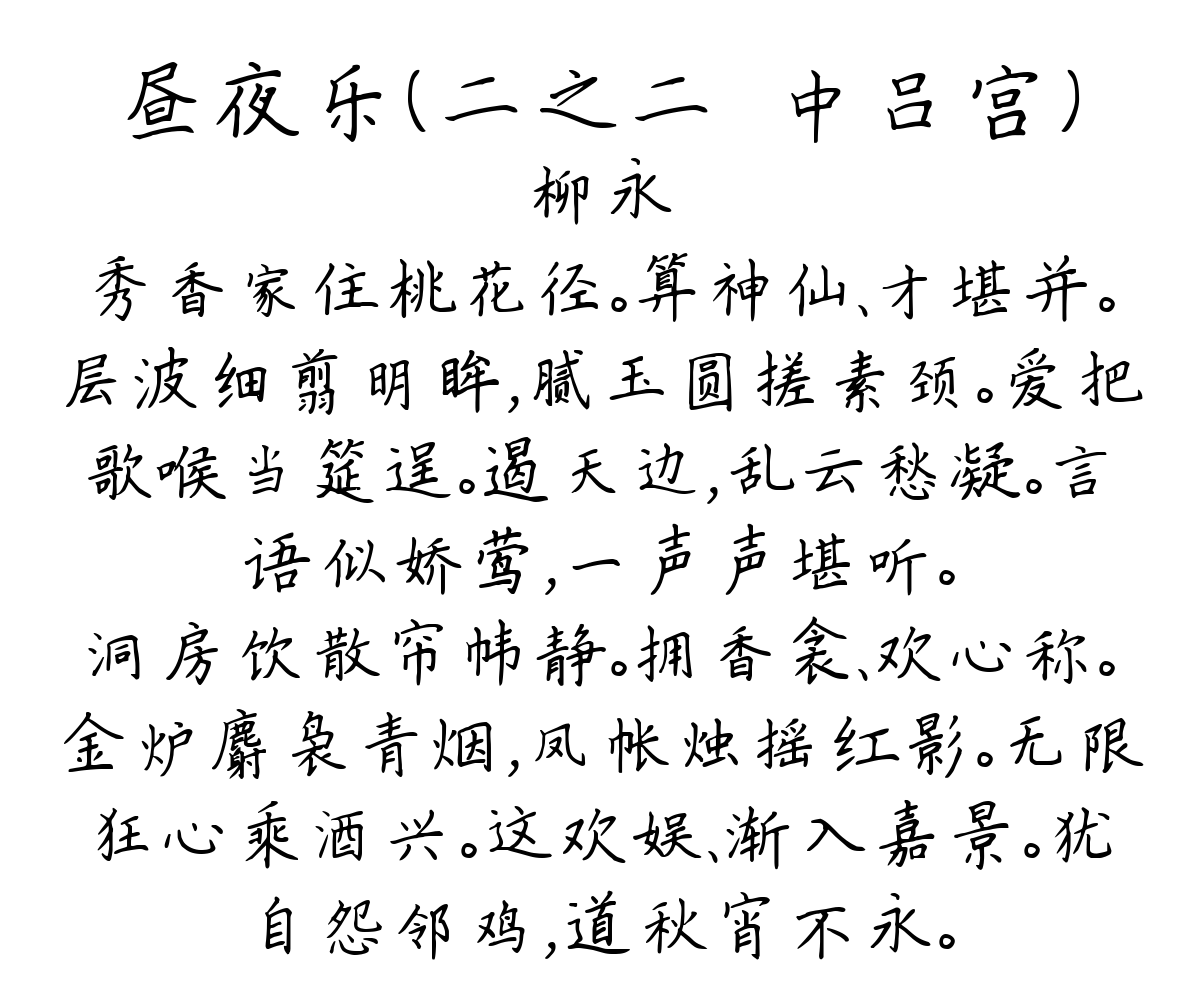 昼夜乐(二之二 中吕宫)
柳永
秀香家住桃花径。算神仙、才堪并。
层波细翦明眸,腻玉圆搓素颈。爱把
歌喉当筵逞。遏天边,乱云愁凝。言
语似娇莺,一声声堪听。
洞房饮散帘帏静。拥香衾、欢心称。
金炉麝袅青烟,凤帐烛摇红影。无限
狂心乘酒兴。这欢娱、渐入嘉景。犹
自怨邻鸡,道秋宵不永。